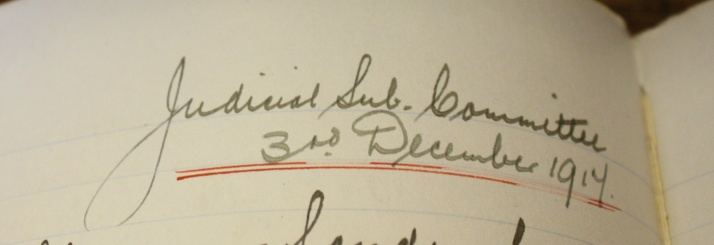 Judicial Sub. Committee
3rd. December 1914.